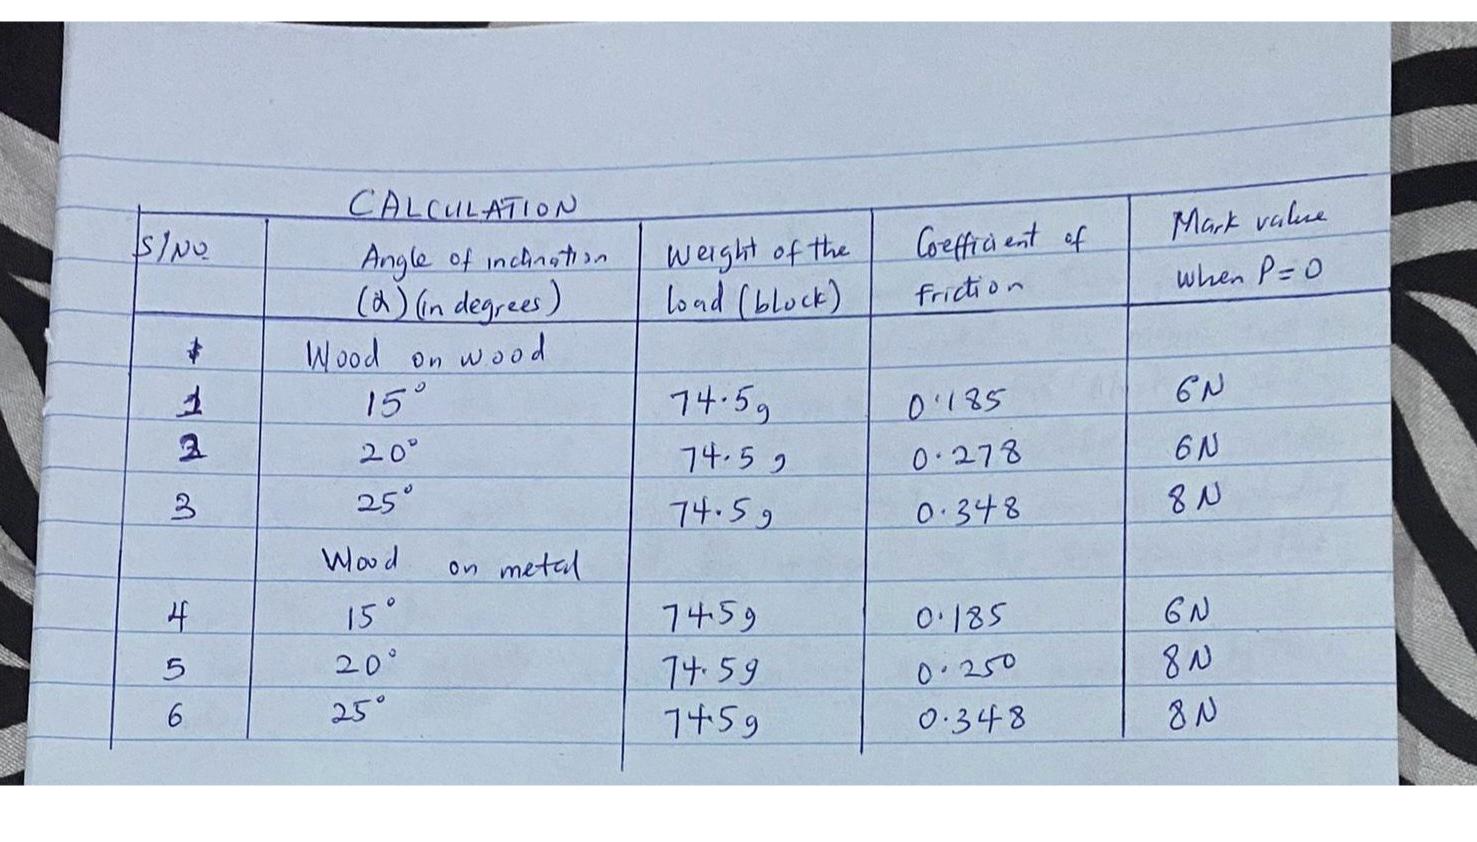 CALCULATION
S/NO Angle of inclination (α) (in degrees) Weight of the load (block) Coefficient of friction Mark value when P=0
Wood on wood
1 15° 74.5g 0.185 6N
2 20° 74.5g 0.278 6N
3 25° 74.5g 0.348 8N
Wood on metal
4 15° 74.5g 0.185 6N
5 20° 74.5g 0.250 8N
6 25° 74.5g 0.348 8N